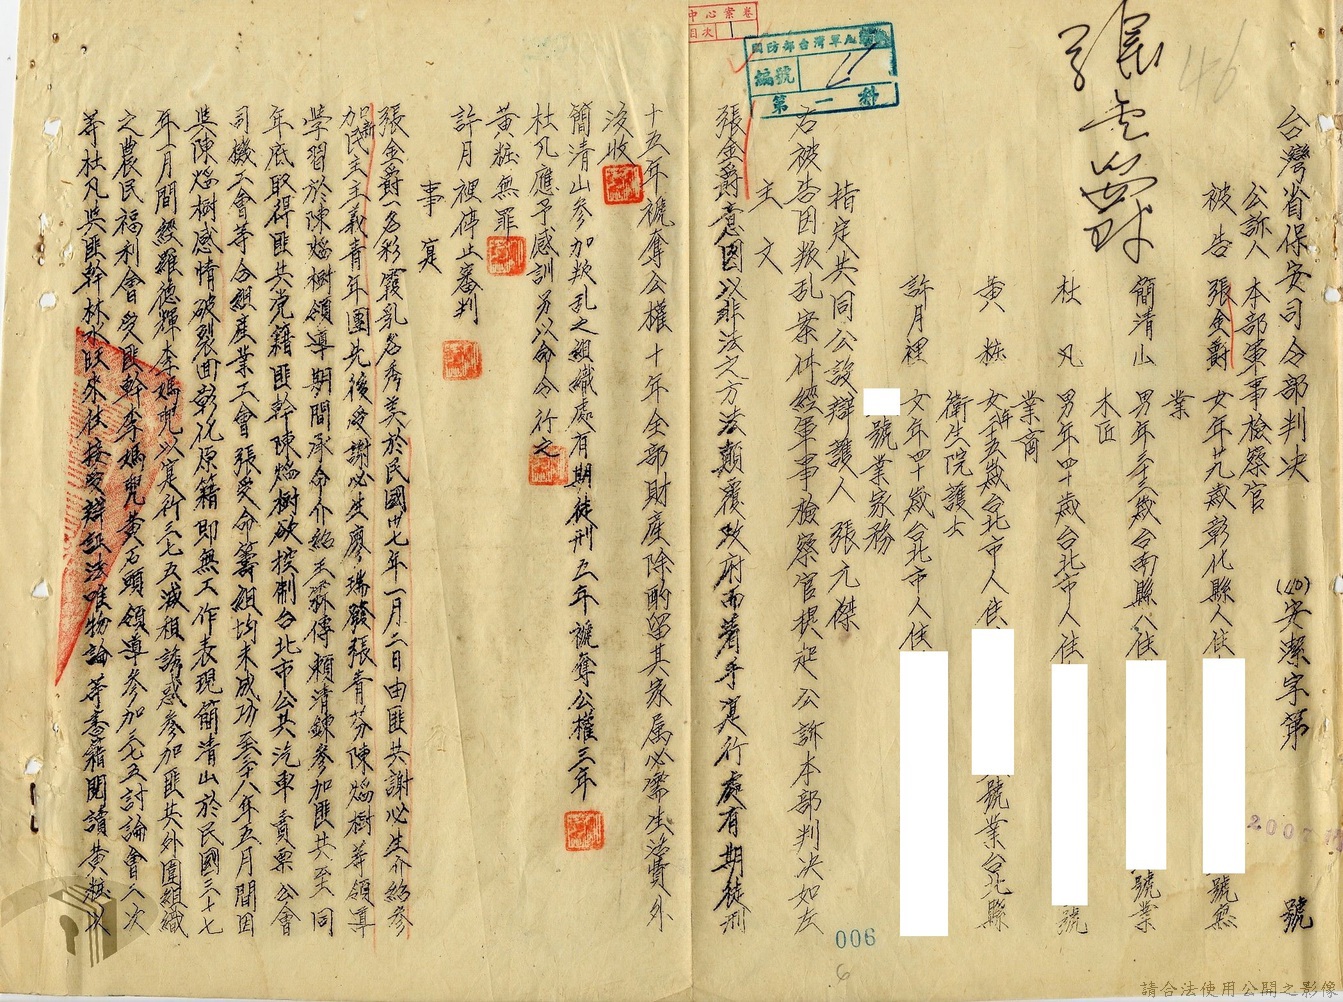 台灣省保安司令部判決
(40)安潔字第　號
公訴人 本部軍事檢察官
被告 張金爵 女年廿九歲彰化縣人住
號無
業
簡清山 男年三十三歲台南縣人住
號業
木匠
杜凡 男年四十歲台北市人住
號
業商
黃粧 女年五歲台北市人住
號業台北縣
衛生院護士
許月裡 女年四十歲台北市人住
號業家務
指定共同公設辯護人 張元傑
右被告因叛乱案件經軍事檢察官提起公訴本部判决如左
主文
張金爵意因以非法之方法顛覆政府而着手寔行處有期徒刑
十五年褫奪公權十年全部財産除酌留其家属必需生活費外
沒收
簡清山参加叛乱之組織處有期徒刑五年褫奪公權三年
杜凡應予感訓另以命令行之
黃粧無罪
許月裡停止審判
事寔
張金爵一名彩霞乳名秀美於民國卅七年一月二日由匪共謝必生介紹参
加新民主主義青年團先後受謝必生廖瑞發張青芬陳焰樹等領導
學習於陳焰樹領導期間承命介紹王蒜傳賴清錬参加匪共至同
年底取得匪共党籍匪幹陳焰樹欲控制台北市公共汽車賣票公會
司機工會等合組産業工會張受命籌組均未成功至三十八年五月間因
與陳焰樹感情破裂回彰化原籍即無工作表現簡清山於民國三十七
年一月間經羅德輝李媽兜以寔行三七五减租誘惑参加匪共外圍組織
之農民福利會受匪幹李媽兜黃石頭領導参加三七五討論會二次
等杜凡與匪幹林水旺來往接受辯証法唯物論等書籍閱讀黃粧以
國防部台灣軍
編號
第一科
中心案卷
目次
張金爵
46
006
6
2007
請合法使用公開之影像